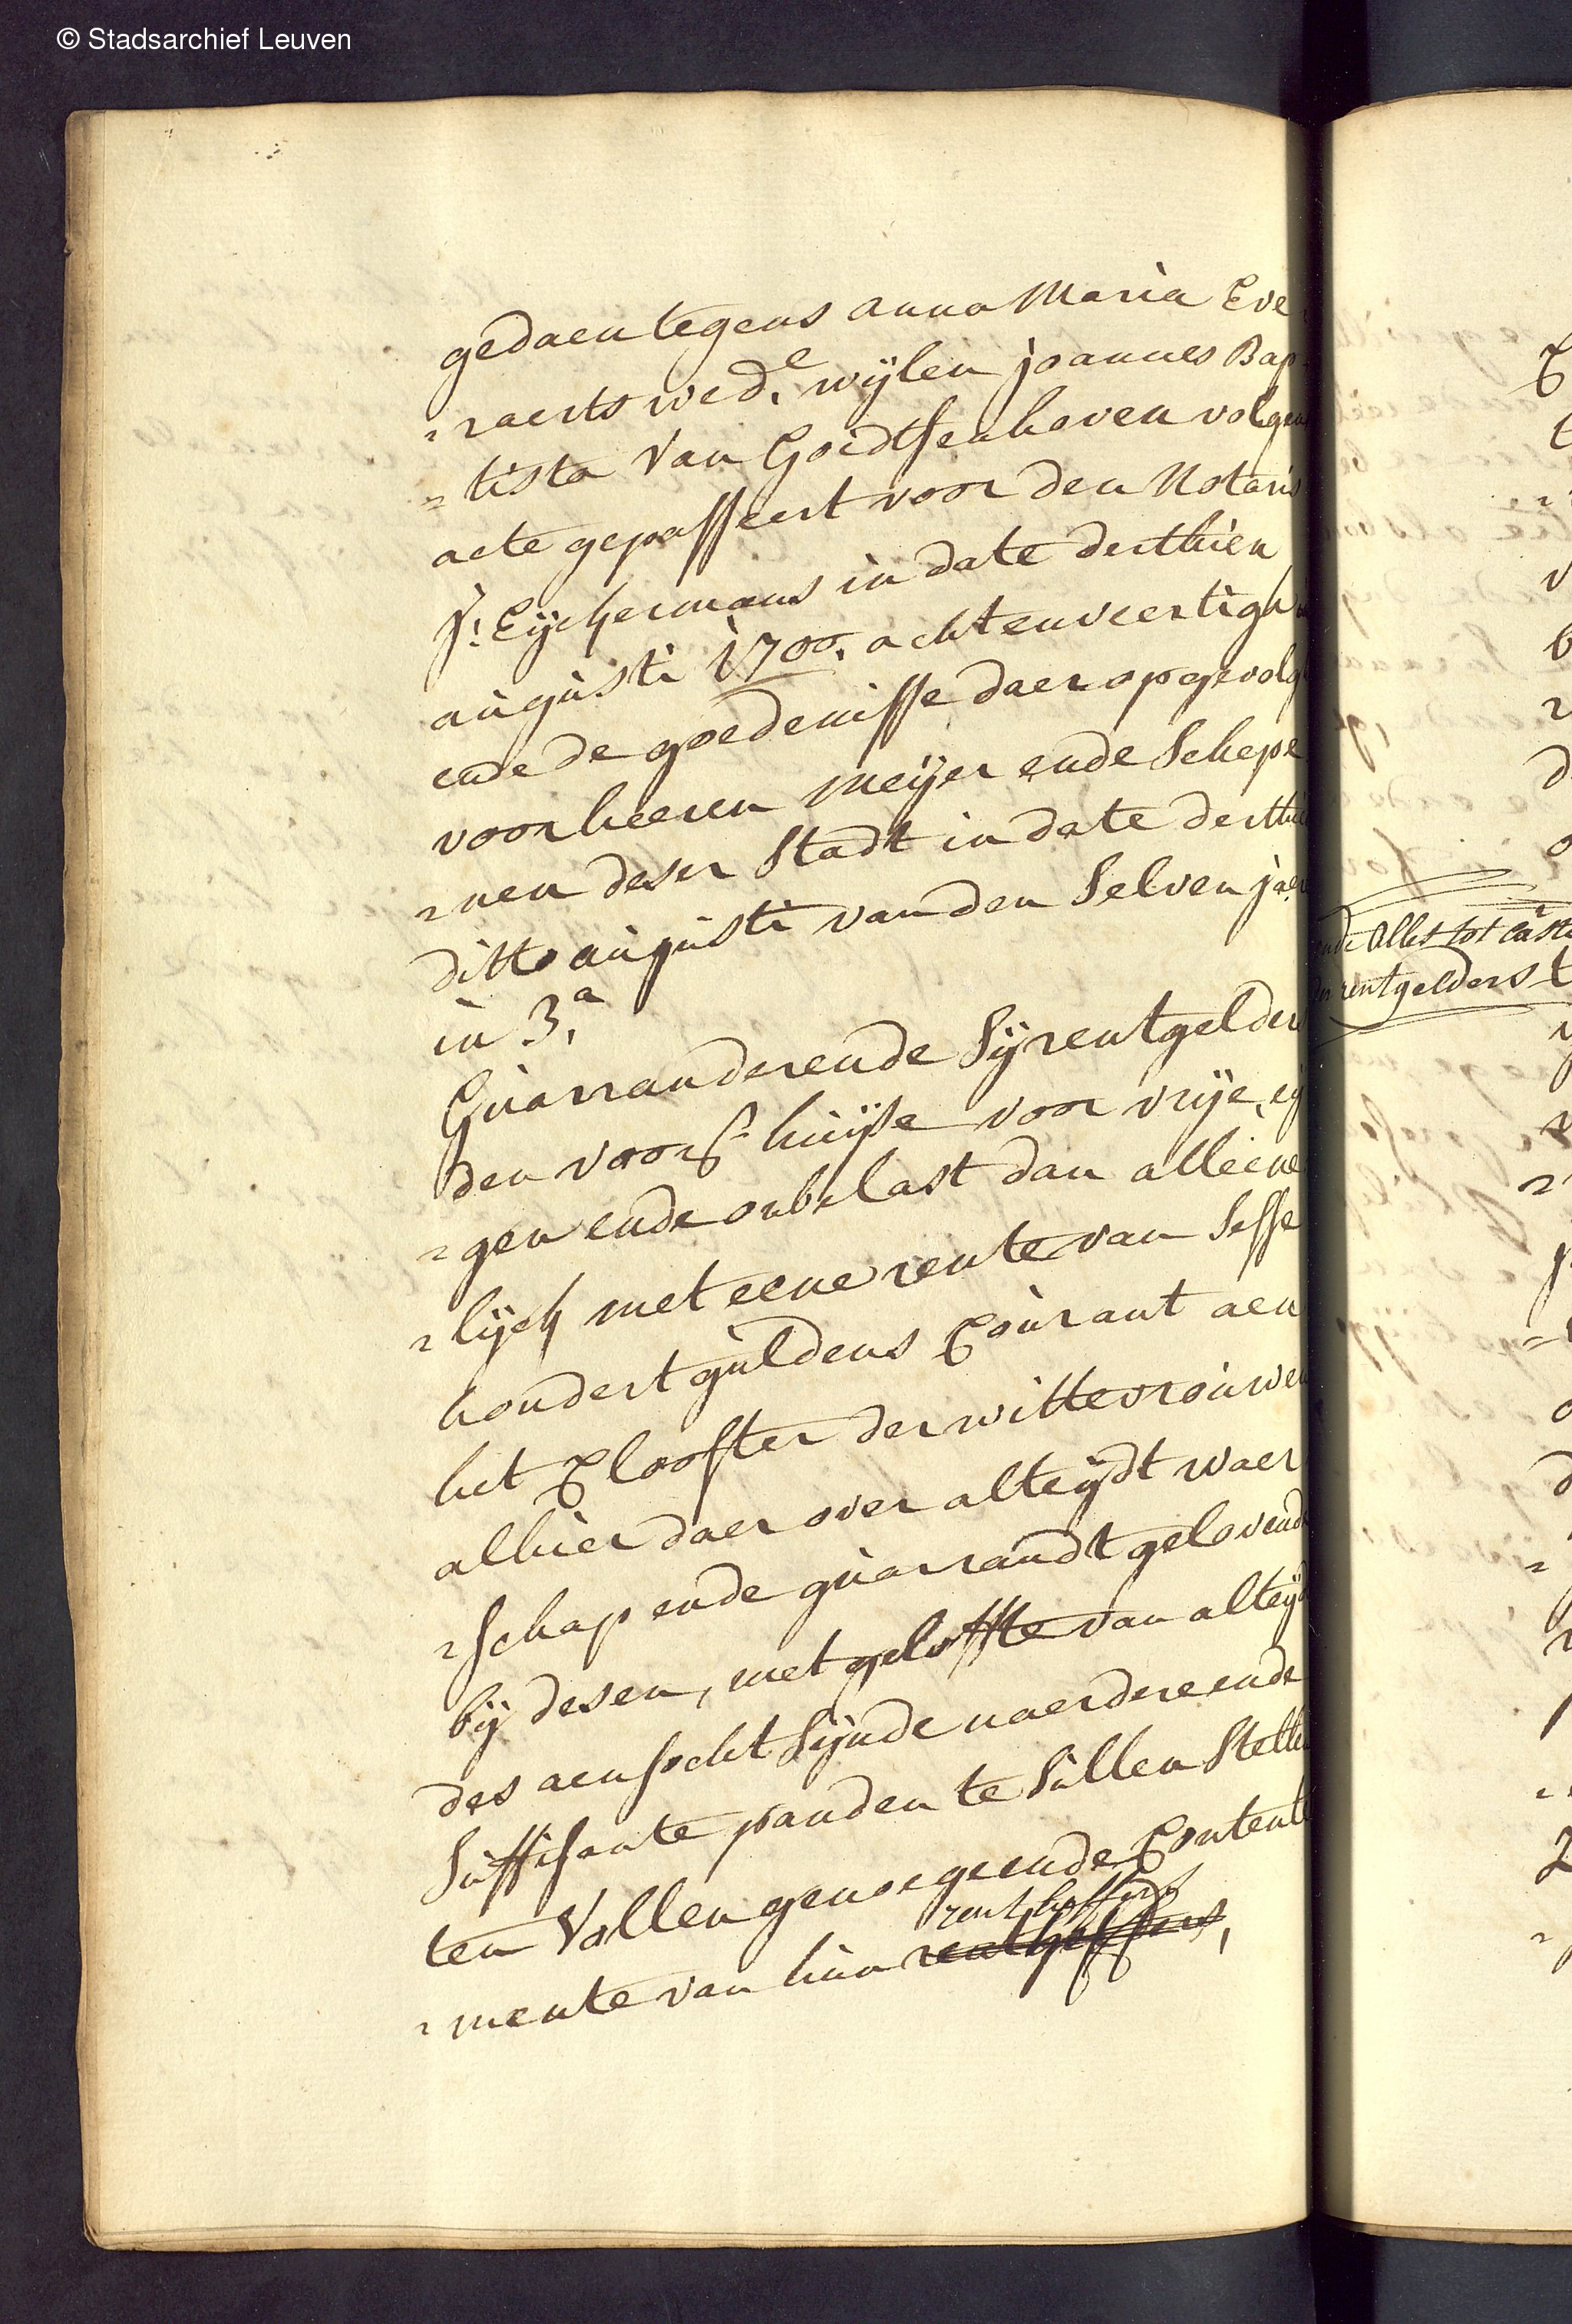 © Stadsarchief Leuven
gedaen tegens anna Maria Eve
=raerts wed.e wijlen joannes Bap=
=tista Van Goidtsenhoven volgen
acte gepasseert voor den Notaris
J: Eyckermans in date derthien
augusti 1700. achtenveertigh
ende de goedenisse daer op gevolg
voor heeren meijer ende Schepe
=nen deser Stadt in date derthie
ditto augusti van den Selven jaer
in 3.a
Guarranderende Sij rentgelders
den voors. huijse voor vrije, eij
=gen ende onbelast dan alleene
=lijck met eene rente van sesse
hondert guldens Courant aen
het Clooster der wittevrouwen
alhier daer over alteijdt waer
=schap ende guarrandt gelovende
bij desen, met geloffte van alteijd
des aensocht Sijnde naerdere ende
Suffisante panden te Sullen Stelle
ten Vollen genoegen ende Contente
rentheffers
=mente van hun rentheffers,
ende alles tot cost
der rentgelders t